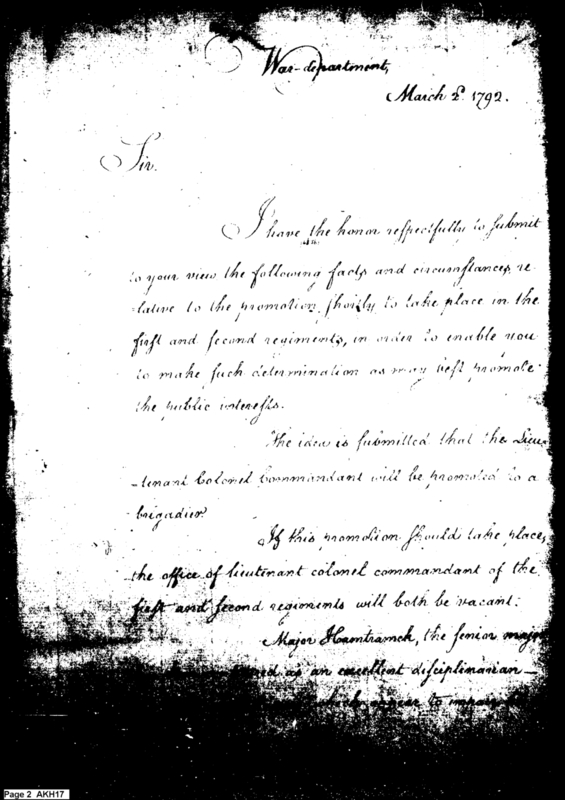 War-department,
March 2d. 1792.
Sir.
I have the honor respectfully to submit
to your view the following facts and circumstances, re
lative to the promotion, shortly to take place in the
first and second regiments, in order to enable you
to make such determination as may best promote
the public interests.
The idea is submitted that the Lieu
-tenant Colonel Commandant will be promoted to a
brigadier.
If this promotion should take place,
the office of lieutenant colonel commandant of the
first and second regiments will both be vacant.
Major Hamtramck, the senior major
as an excellent disciplinarian—
appear to impair
Page 2 AKH17